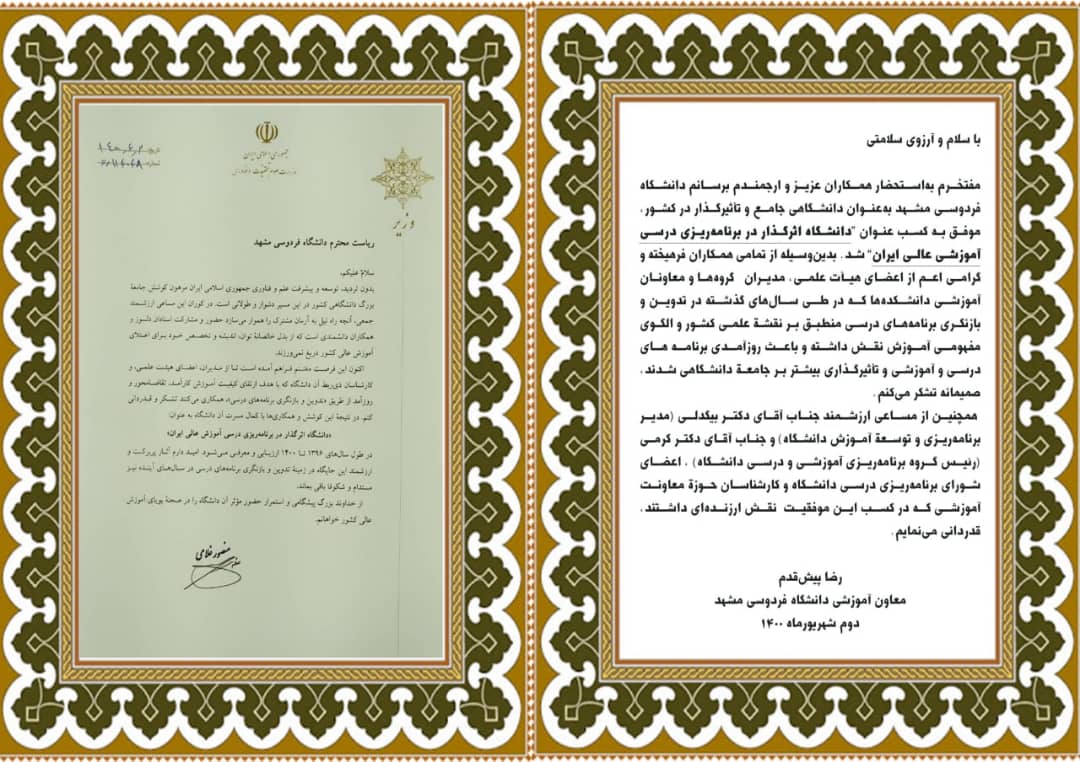 با سلام و آرزوی سلامتی
مفتخرم به‌استحضار همکاران عزیز و ارجمندم برسانم دانشگاه
فردوسی مشهد به‌عنوان دانشگاهی جامع و تأثیرگذار در کشور،
موفق به کسب عنوان "دانشگاه اثرگذار در برنامه‌ریزی درسی
آموزشی عالی ایران" شد. بدین‌وسیله از تمامی همکاران فرهیخته و
گرامی اعم از اعضای هیأت علمی، مدیران گروه‌ها و معاونان
آموزشی دانشکده‌ها که در طی سال‌های گذشته در تدوین و
بازنگری برنامه‌های درسی منطبق بر نقشهٔ علمی کشور و الگوی
مفهومی آموزش نقش داشته و باعث روزآمدی برنامه های
درسی و آموزشی و تأثیرگذاری بیشتر بر جامعهٔ دانشگاهی شدند،
صمیمانه تشکر می‌کنم.
همچنین از مساعی ارزشمند جناب آقای دکتر بیکدلی (مدیر
برنامه‌ریزی و توسعهٔ آموزش دانشگاه) و جناب آقای دکتر کرمی
(رئیس گروه برنامه‌ریزی آموزشی و درسی دانشگاه)، اعضای
شورای برنامه‌ریزی درسی دانشگاه و کارشناسان حوزهٔ معاونت
آموزشی که در کسب این موفقیت نقش ارزنده‌ای داشتند،
قدردانی می‌نمایم.
رضا پیش‌قدم
معاون آموزشی دانشگاه فردوسی مشهد
دوم شهریورماه ۱۴۰۰
جمهوری اسلامی ایران
وزارت علوم، تحقیقات و فناوری
وزیر
ریاست محترم دانشگاه فردوسی مشهد
سلامٌ علیکم،
بدون تردید، توسعه و پیشرفت علم و فناوری جمهوری اسلامی ایران مرهون کوشش جامعهٔ
بزرگ دانشگاهی کشور در این مسیر دشوار و طولانی است. در کوران این مساعی ارزشمند
جمعی، آنچه راه نیل به آرمان مشترک را هموار می‌سازد حضور و مشارکت استادان دلسوز و
همکاران دانشمندی است که از بذل خالصانهٔ توان، اندیشه و تخصص خود برای اعتلای
آموزش عالی کشور دریغ نمی‌ورزند.
اکنون این فرصت مغتنم فراهم آمده است تا از مدیران، اعضای هیئت علمی، و
کارشناسان ذی‌ربط آن دانشگاه که با هدف ارتقای کیفیت آموزش کارآمد، تقاضامحور و
روزآمد از طریق «تدوین و بازنگری برنامه‌های درسی»، همکاری می‌کنند تشکر و قدردانی
کنم. در نتیجهٔ این کوشش و همکاری‌ها با کمال مسرت آن دانشگاه به عنوان:
«دانشگاه اثرگذار در برنامه‌ریزی درسی آموزش عالی ایران»
در طول سال‌های ۱۳۹۶ تا ۱۴۰۰ ارزیابی و معرفی می‌شود. امید دارم آثار پربرکت و
ارزشمند این جایگاه در زمینهٔ تدوین و بازنگری برنامه‌های درسی در سال‌های آینده نیز
مستدام و شکوفا باقی بماند.
از خداوند بزرگ پیشگامی و استمرار حضور مؤثر آن دانشگاه را در صحنهٔ پویای آموزش
عالی کشور خواهانم.
منصور غلامی